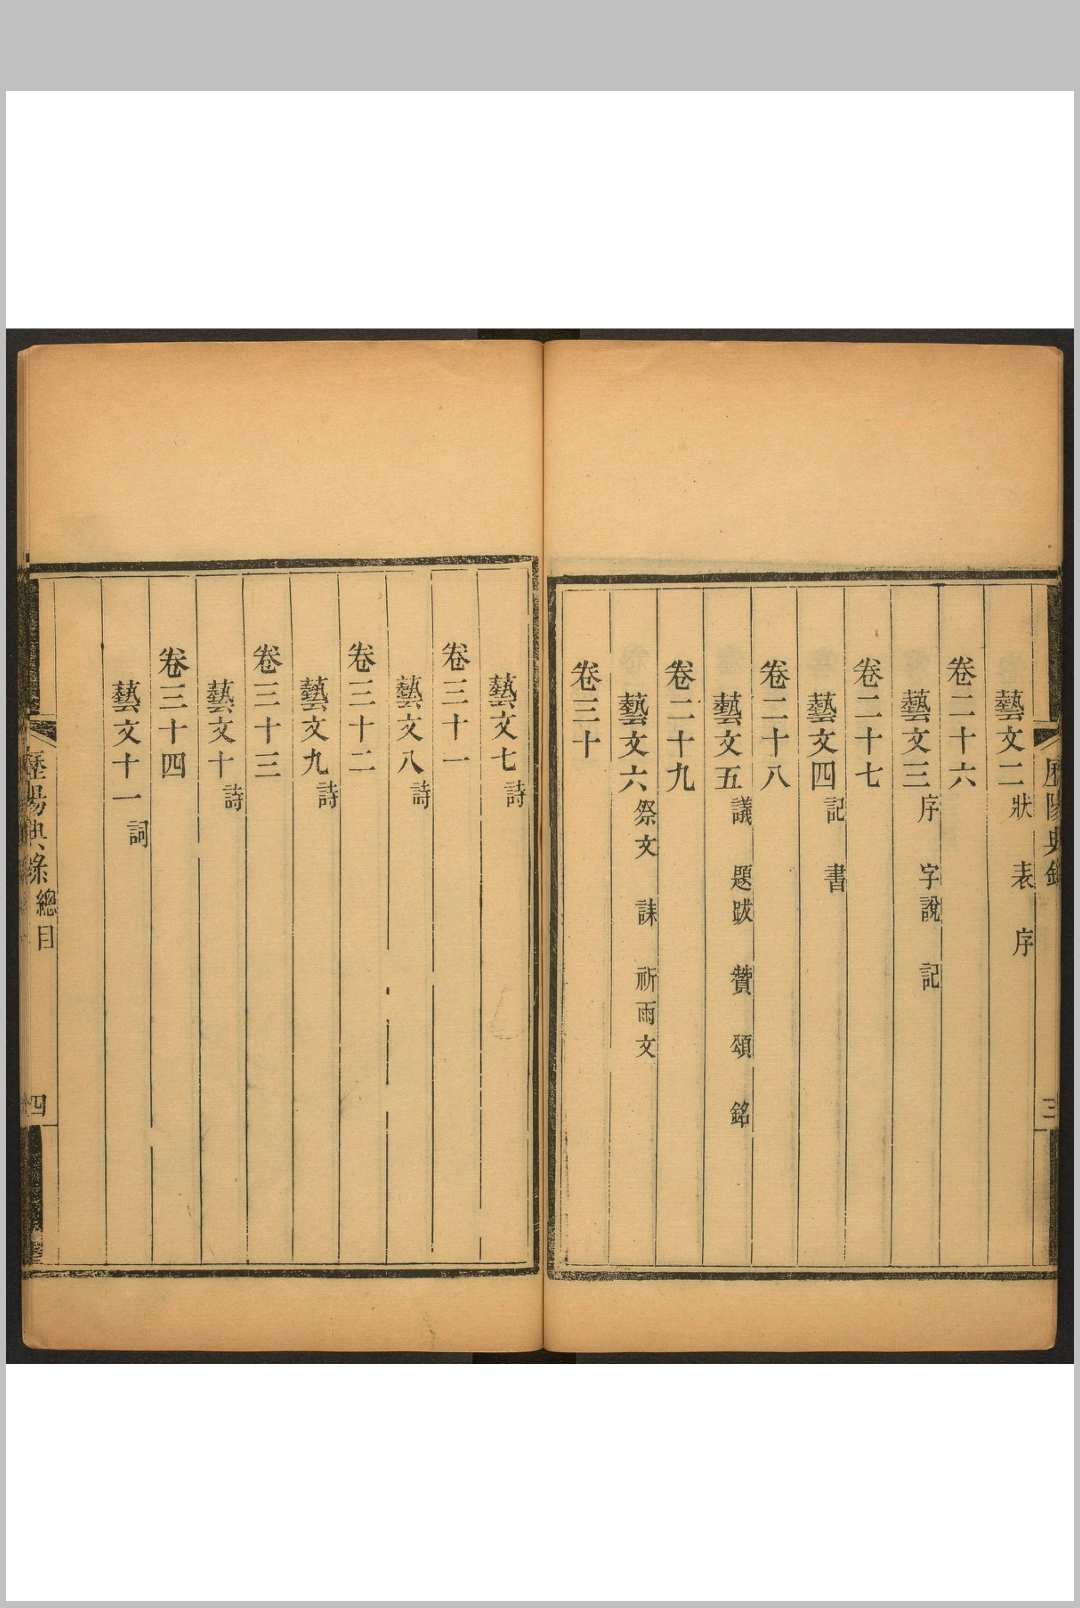 歷陽典錄
三
藝文二 狀 表 序
卷二十六
藝文三 序 字說 記
卷二十七
藝文四 記 書
卷二十八
藝文五 議 題跋 贊 頌 銘
卷二十九
藝文六 祭文 誄 祈雨文
卷三十
藝文七 詩
卷三十一
藝文八 詩
卷三十二
藝文九 詩
卷三十三
藝文十 詩
卷三十四
藝文十一 詞
歷陽典錄 總目
四